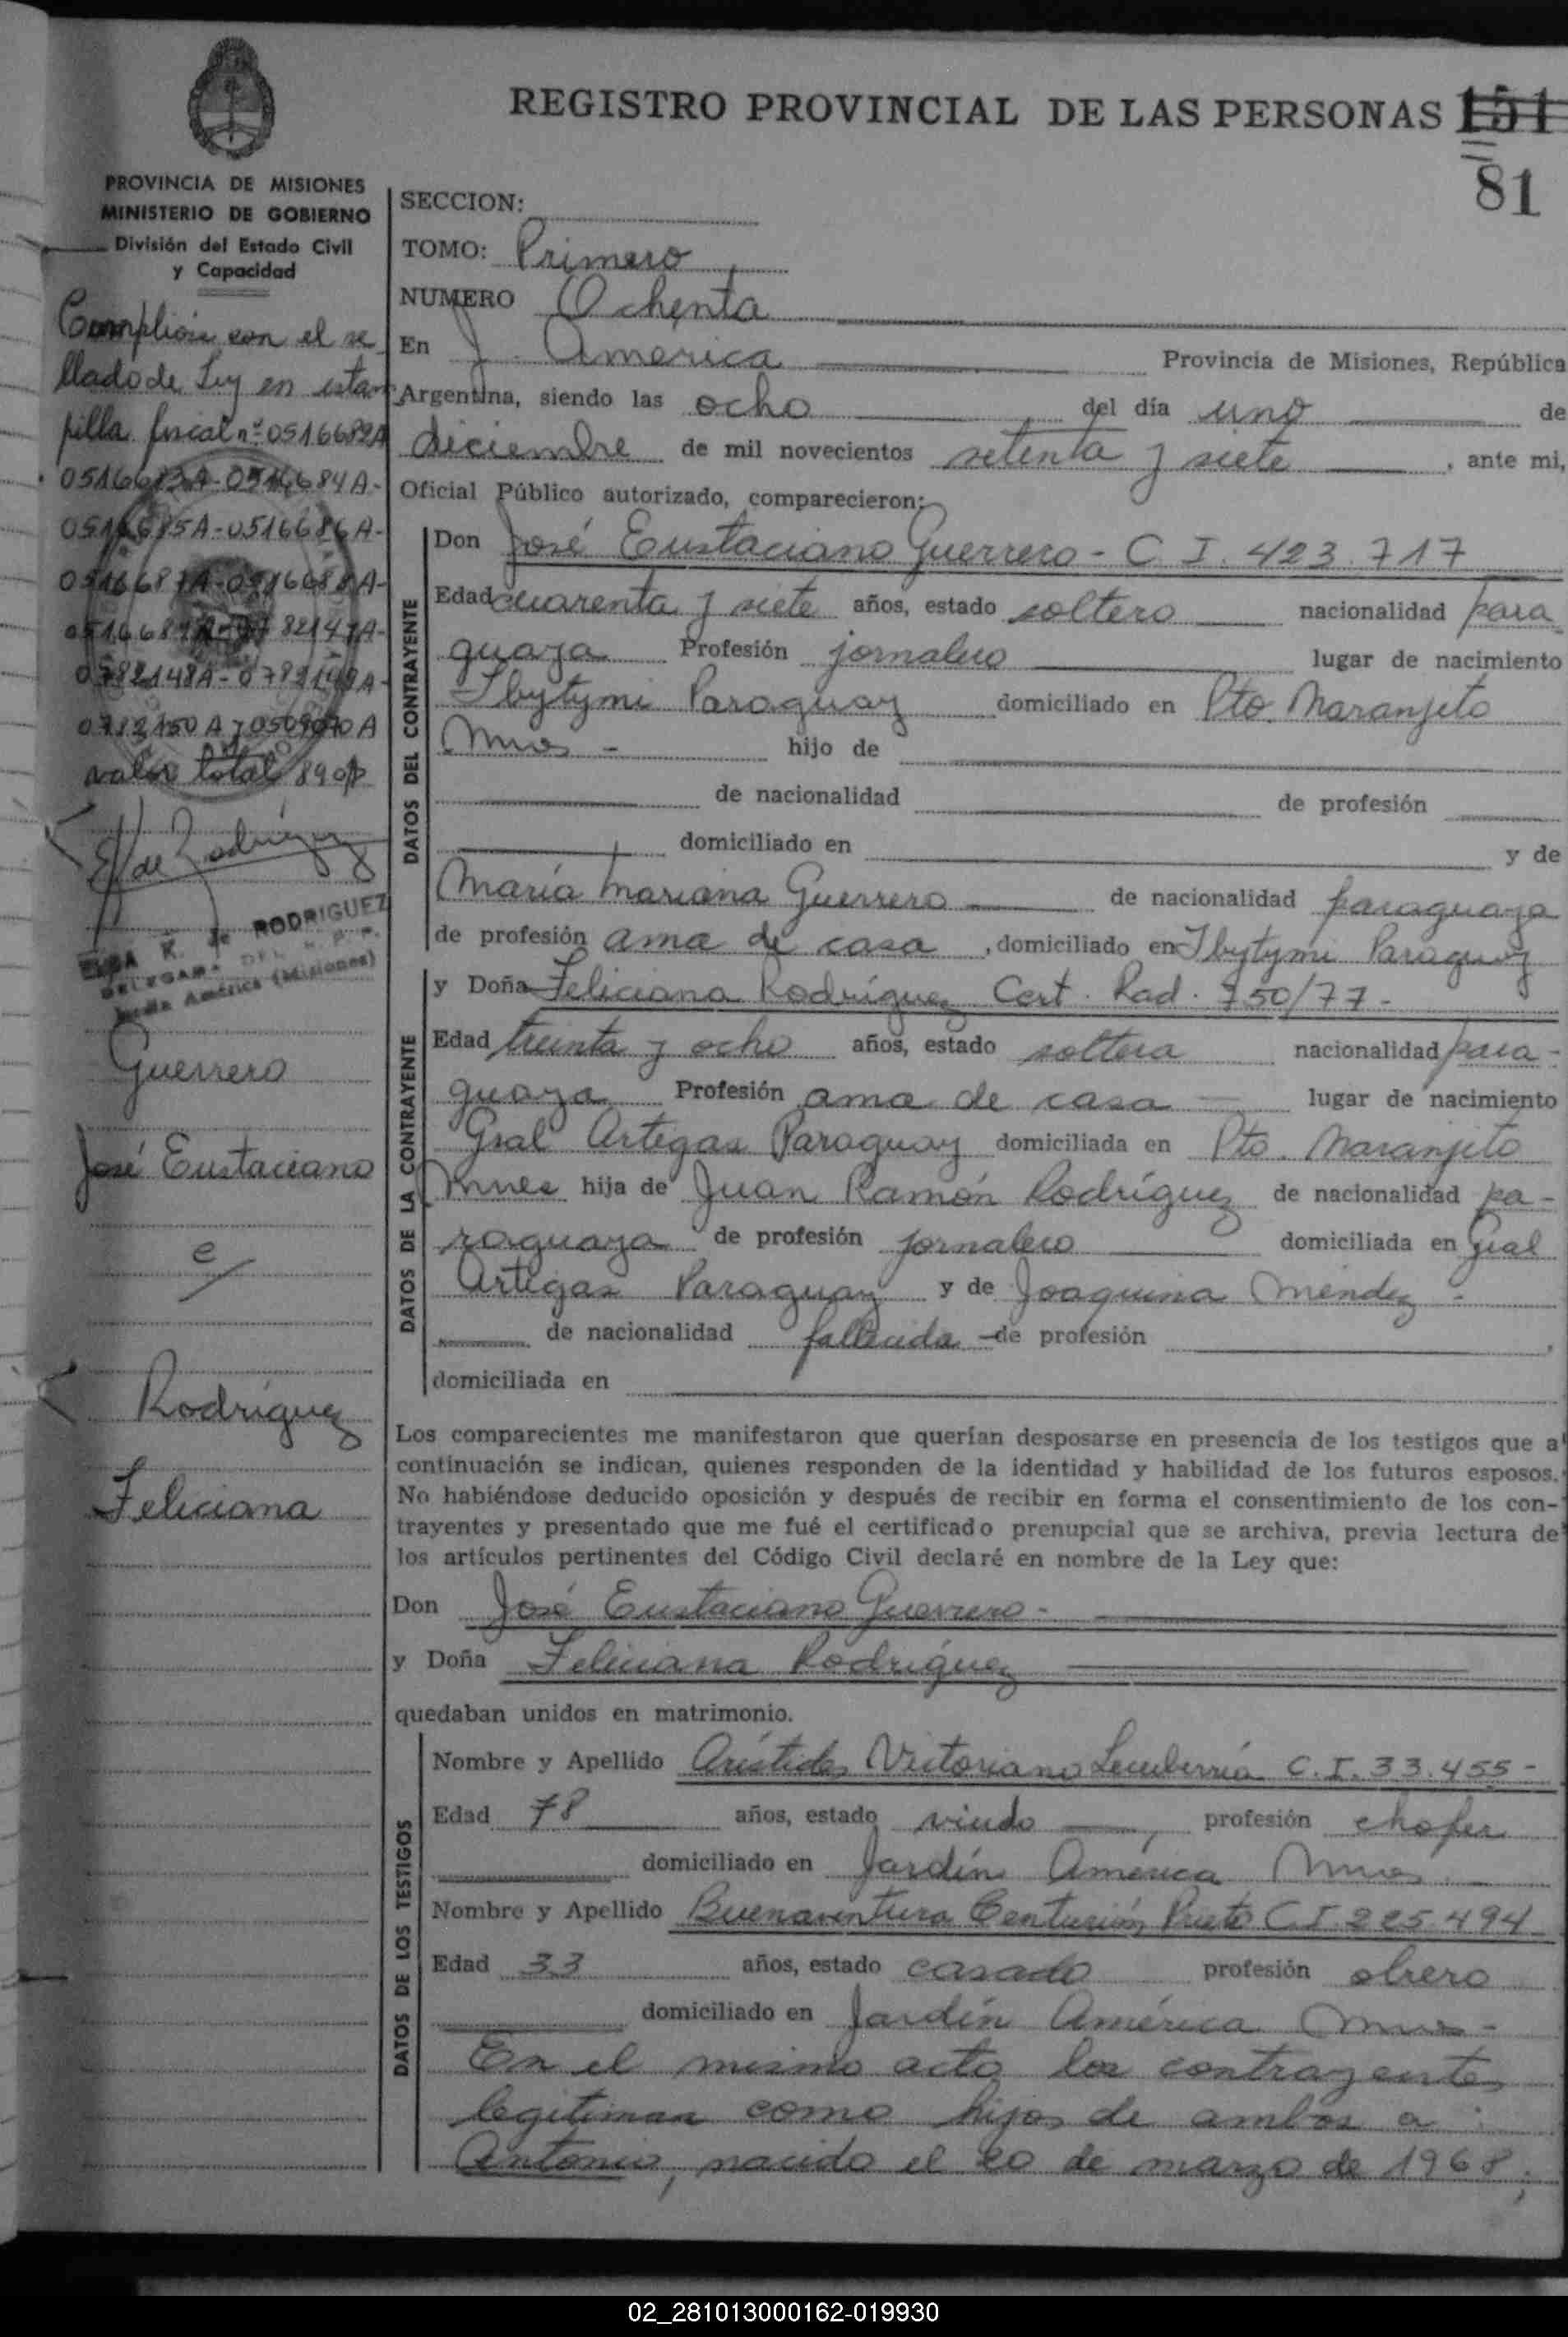 REGISTRO PROVINCIAL DE LAS PERSONAS 151
81
PROVINCIA DE MISIONES
MINISTERIO DE GOBIERNO
División del Estado Civil
y Capacidad
Complióse con el se
llado de Ley en estam
pilla fiscal nº 0516682A
0516683A-0516684A-
0516685A-0516686A-
0516687A-0516688A-
0782148A-0782149A-
0782150A y 0509070A
valor total 890p
E/ de Rodríguez
ELBA K. de RODRIGUEZ
DELEGADA DEL R. P. P.
Jardín América (Misiones)
Guerrero
José Eustaciano
e/
Rodríguez
Feliciana
SECCION:
TOMO: Primero
NUMERO Ochenta
En J. America Provincia de Misiones, República
Argentina, siendo las ocho del día uno de
diciembre de mil novecientos setenta y siete , ante mi,
Oficial Público autorizado, comparecieron:
DATOS DEL CONTRAYENTE
Don José Eustaciano Guerrero - C.I. 423.717
Edad cuarenta y siete años, estado soltero nacionalidad para
guaya Profesión jornalero lugar de nacimiento
Ibytymi Paraguay domiciliado en Pto. Naranjito
Mnes - hijo de
de nacionalidad de profesión
domiciliado en y de
María Mariana Guerrero de nacionalidad paraguaya
de profesión ama de casa , domiciliado en Ibytymi Paraguay
DATOS DE LA CONTRAYENTE
y Doña Feliciana Rodríguez Cert. Rad. 750/77-
Edad treinta y ocho años, estado soltera nacionalidad para-
guaya Profesión ama de casa - lugar de nacimiento
Gral Artigas Paraguay domiciliada en Pto. Naranjito
Mnes hija de Juan Ramón Rodríguez de nacionalidad pa-
raguaya de profesión jornalero domiciliada en Gral
Artigas Paraguay y de Joaquina Méndez -
de nacionalidad fallecida - de profesión ,
domiciliada en
Los comparecientes me manifestaron que querían desposarse en presencia de los testigos que a
continuación se indican, quienes responden de la identidad y habilidad de los futuros esposos.
No habiéndose deducido oposición y después de recibir en forma el consentimiento de los con-
trayentes y presentado que me fué el certificado prenupcial que se archiva, previa lectura de
los artículos pertinentes del Código Civil declaré en nombre de la Ley que:
Don José Eustaciano Guerrero -
y Doña Feliciana Rodríguez
quedaban unidos en matrimonio.
DATOS DE LOS TESTIGOS
Nombre y Apellido Arístides Victoriano Lecuberría C.I. 33.455-
Edad 78 años, estado viudo , profesión chofer
domiciliado en Jardín América Mnes
Nombre y Apellido Buenaventura Centurión Prieto C.I. 225.494
Edad 33 años, estado casado profesión obrero
domiciliado en Jardín América Mnes -
En el mismo acto los contrayentes
legitiman como hijos de ambos a:
Antonio, nacido el 20 de marzo de 1968;
02_281013000162-019930